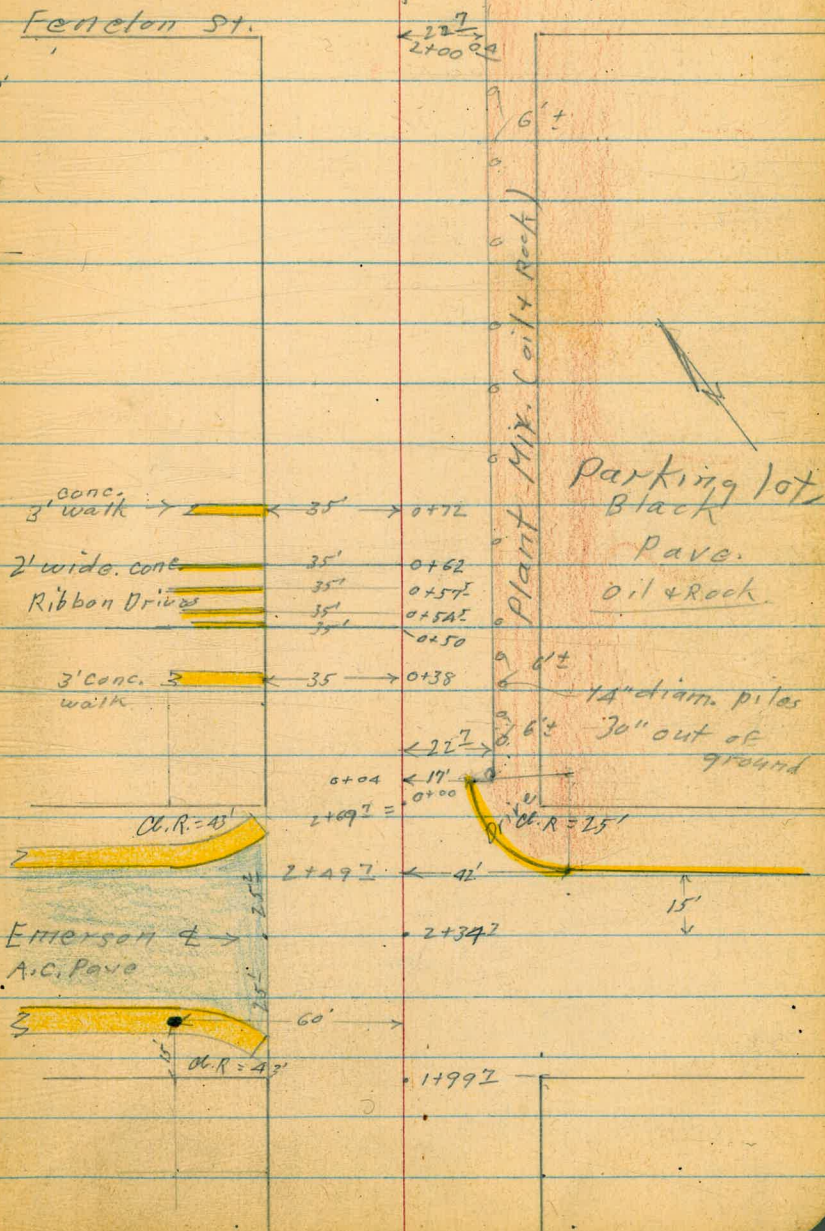 Fenelon St.
22 7
2+00 04
6' ±
Plant Mix. (oil & Rock)
Parking lot,
Black
Pave.
oil & Rock
conc.
3' walk
35'
0+72
2' wide. conc
Ribbon Drives
35'
0+62
35'
0+57 5
35'
0+54 5
35'
0+50
3' conc.
walk
35
0+38
6' ±
14" diam. piles
30" out of
ground
6' ±
22 7
0+04
17'
0+00
2+69 7 =
Cb. R. = 43'
Cb. R = 25'
2+49 7
42'
25'
15'
Emerson ₵
A.C. Pave
2+34 7
25'
60'
15'
Cb. R = 43'
1+99 7